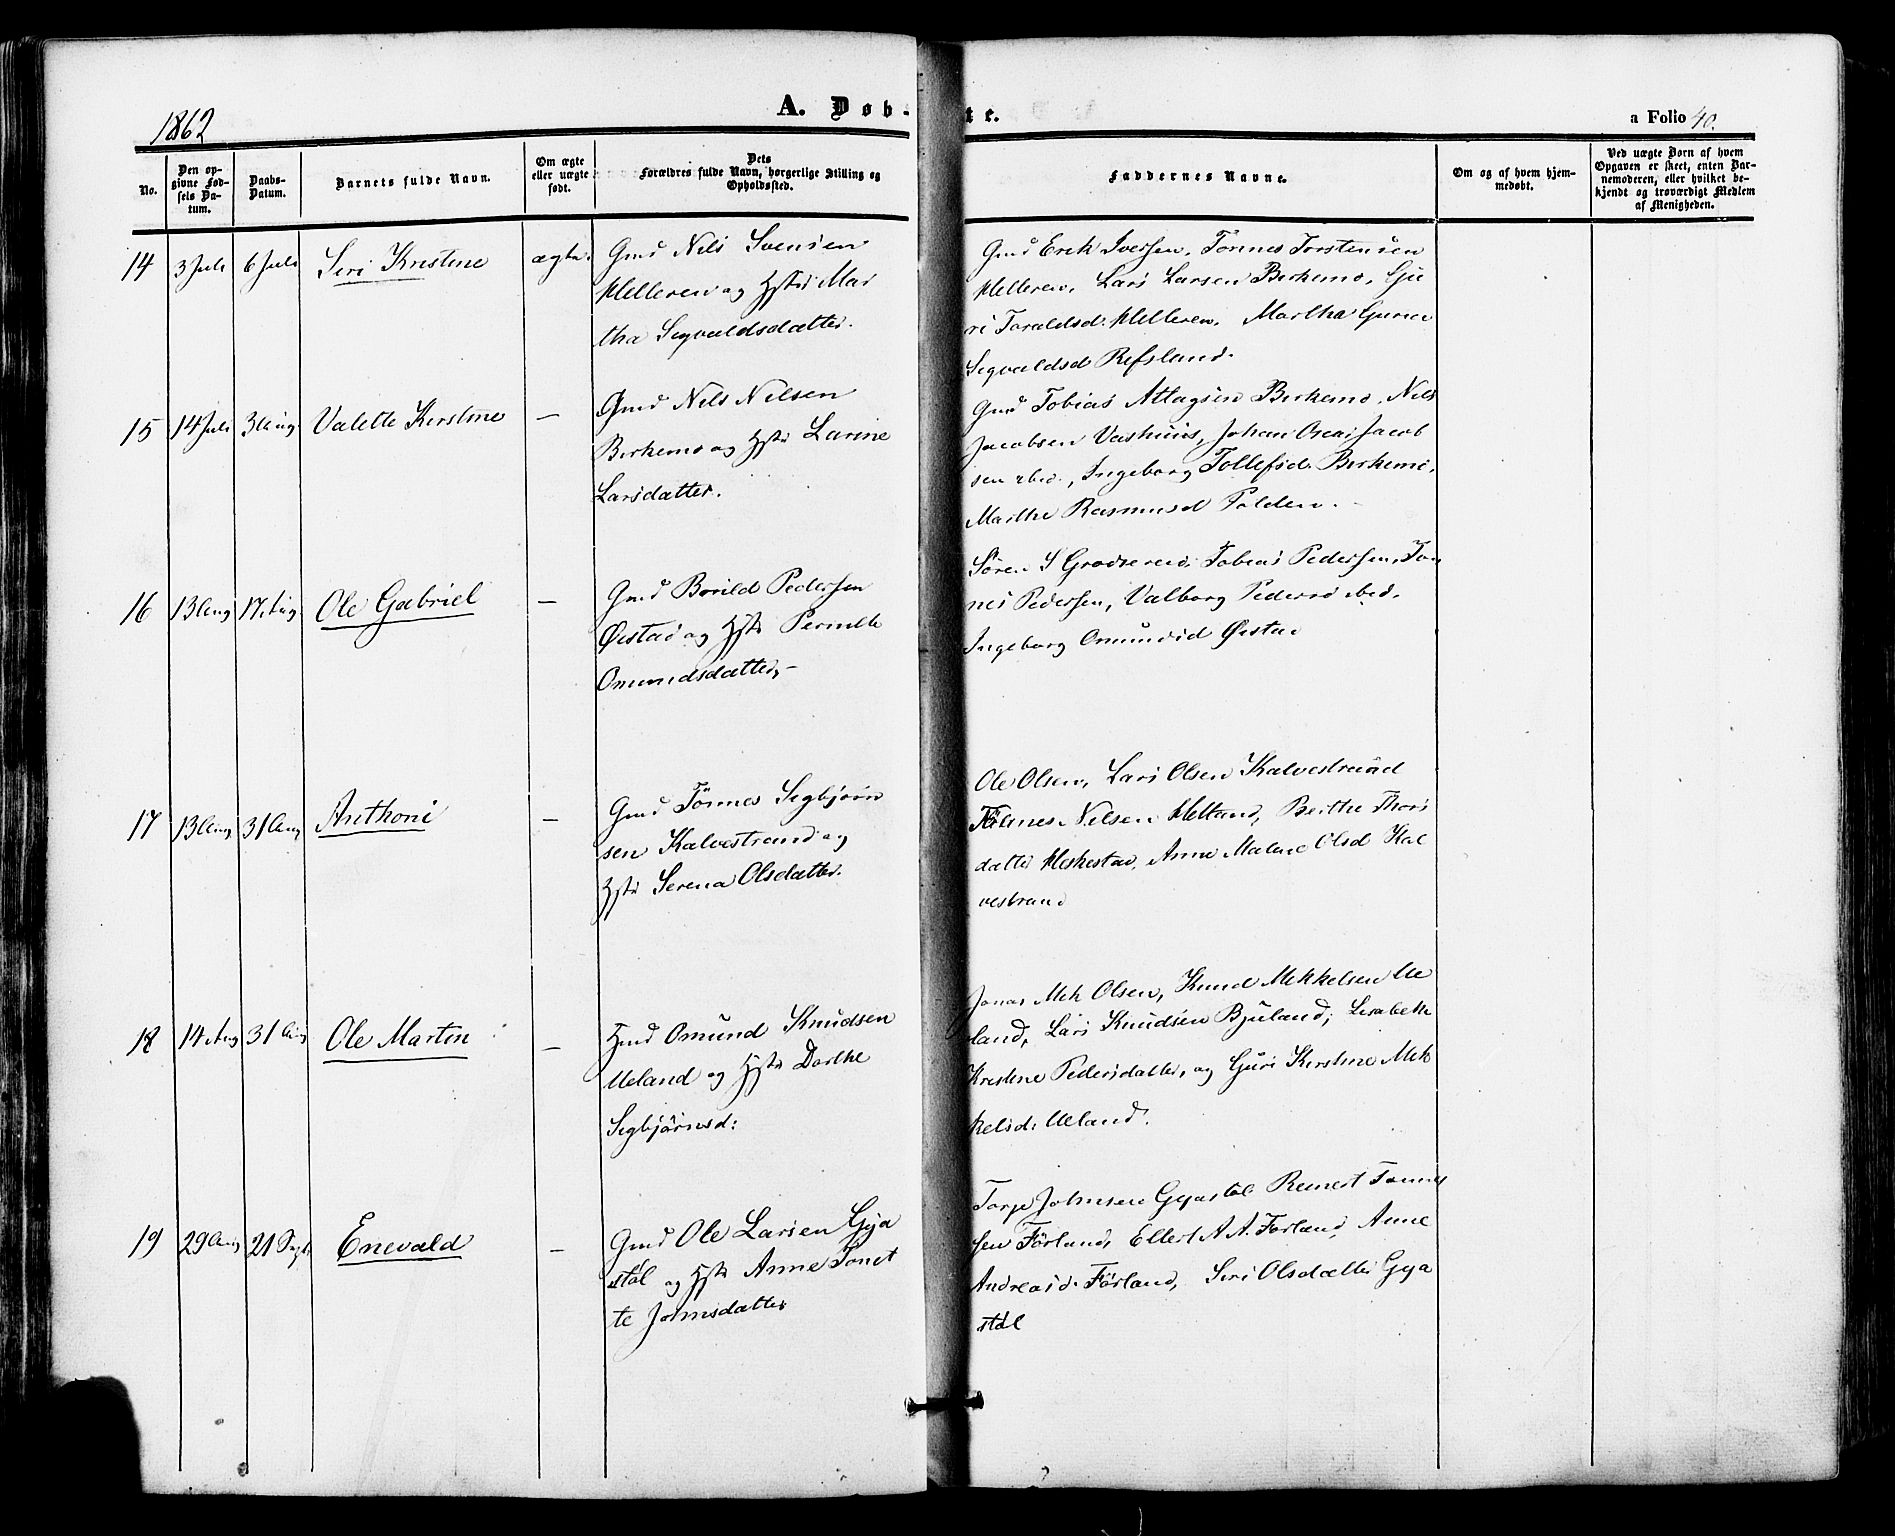 1862
A. Døb-
te.
a Folio 40.
No.
Den op-
givne Fød-
sels Da-
tum.
Daabs-
Datum.
Barnets fulde Navn.
Om ægte
eller uægte
født.
Dets
Forældres fulde Navn, borgerlige Stilling og
Opholdssted.
Faddernes Navne.
Om og af hvem hjem-
medøbt.
Ved uægte Børn af hvem
Opgaven er skeet, enten Bar-
nemoderen, eller hvilket be-
kjendt og troværdigt Medlem
af Menigheden.
14 3 Juli 6 Juli Siri Kristine ægte.
Gmd Nils Svensen
Helleren og Hstr Mar
tha Sigvaldsdatter.
Gmd Erik Iversen, Tønnes Torstensen
Helleren, Lars Larsen Birkemo, Gu
ri Toraldsd. Helleren, Martha Gurine
Sigvaldsd Refsland.
15 14 Juli 3 Aug Valette Kirstine —
Gmd Nils Nilsen
Birkemo og Hstr Larine
Larsdatter.
Gmd Tobias Attagsen Birkemo, Nils
Jacobsen Vashuus, Johan Oscar Jacob
sen ibid., Ingeborg Tollefsd. Birkemo,
Marthe Rasmusd Polden. -
16 13 Aug 17 Aug Ole Gabriel —
Gmd Borild Pedersen
Ørstad og Hstr Pernille
Omundsdatter, -
Sören S Grodserend, Tobias Pedersen, Tøn
nes Pedersen, Valborg Pedersd ibid,
Ingeborg Omundsd Ørstad
17 13 Aug 31 Aug Anthoni —
Gmd Tönnes Sigbjörn
sen Kalvestrand og
Hstr Serena Olsdatter.
Ole Olsen, Lars Olsen Kalvestrand
Tönnes Nilsen Helland, Berthe Thors
datter Heskestad, Anne Malene Olsd Kal
vestrand
18 14 Aug 31 Aug Ole Martin —
Hmd Omund Knudsen
Ueland og Hstr Dorthe
Sigbjörnsd:
Jonas Mik Olsen, Knud Mikkelsen Ue
land, Lars Knudsen Bjuland, Lisabeth
Kristine Pedersdatter, og Guri Kirstine Mik
kelsd: Ueland.
19 29 Aug 21 Sept Enevald —
Gmd Ole Larsen Gya
stöl og Hstr Anne Tonet
te Johnsdatter
Torje Johnsen Gyastöl Reinert Tønnes
sen Förland, Ellert A A. Forland, Anne
Andreasd. Förland, Siri Olsdatter Gya
stöl